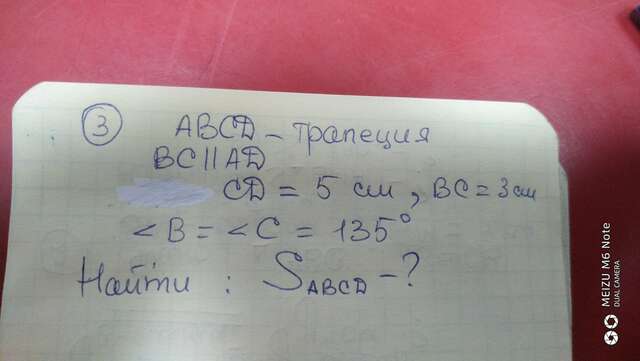 3
ABCD – трапеция
BC || AD
CD = 5 см, BC = 3 см
<B = <C = 135°
Найти : S ABCD – ?
MEIZU M6 Note
DUAL CAMERA